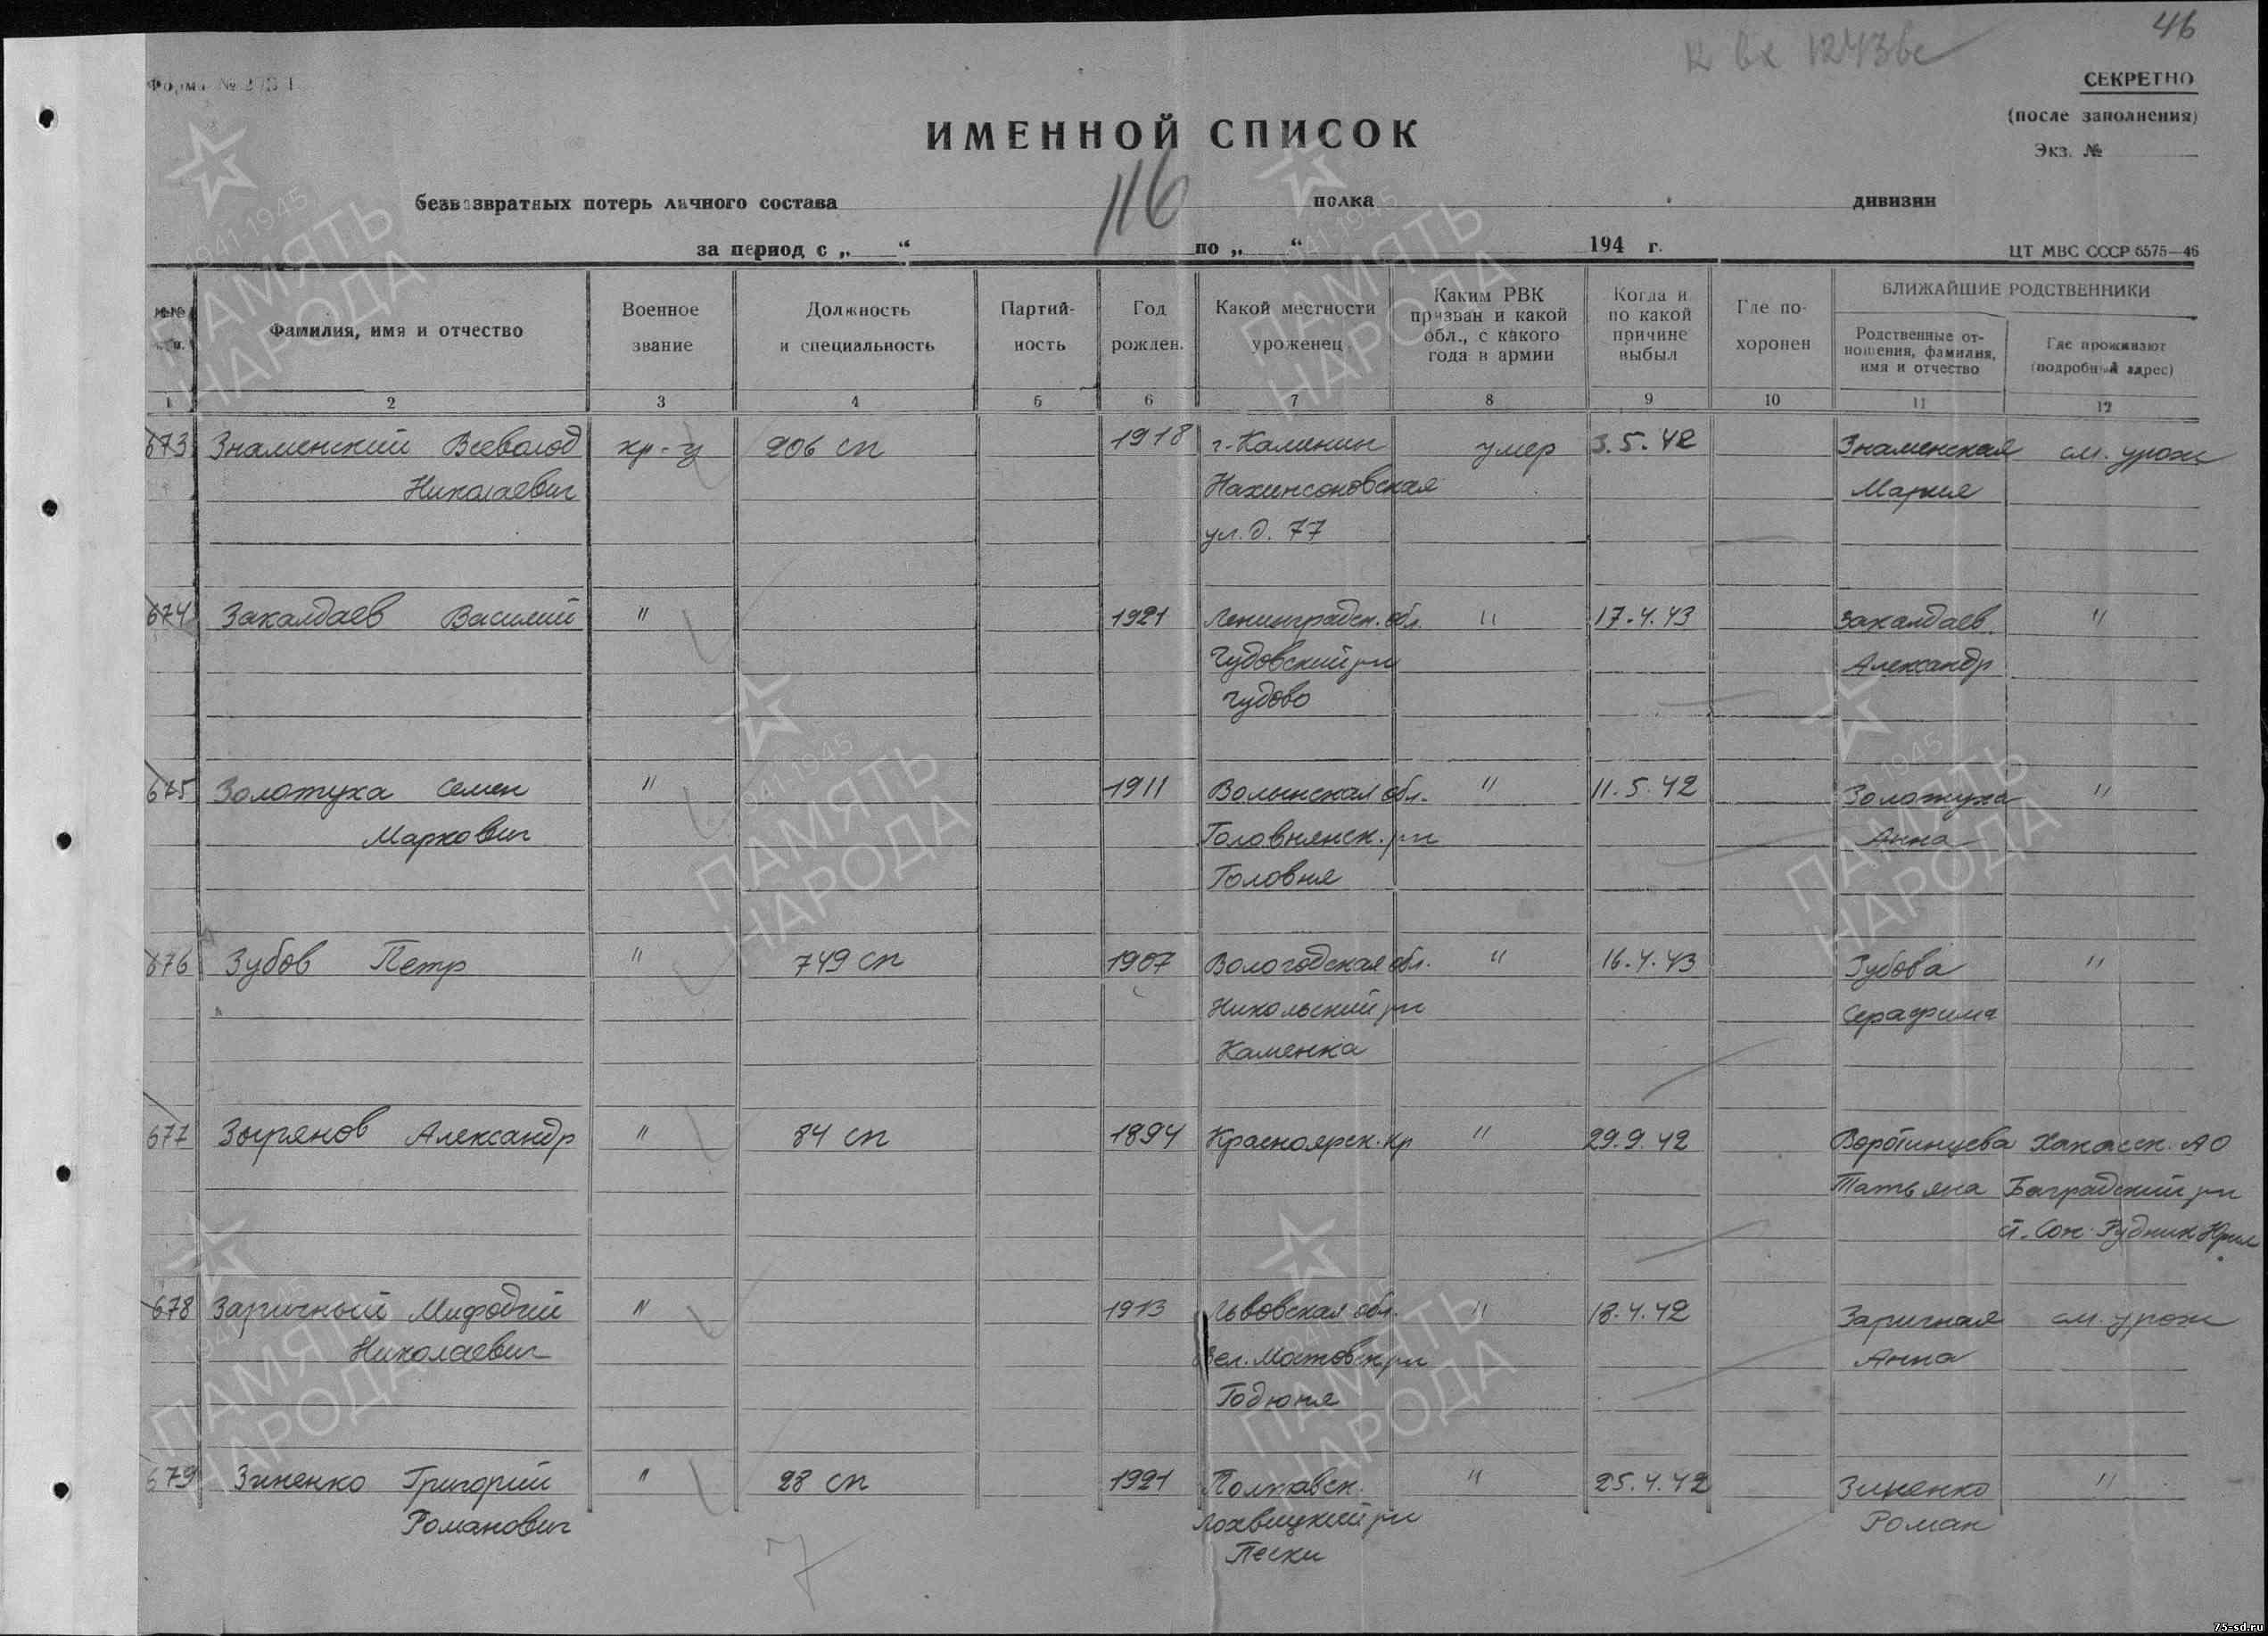 46
к вх 1243вс
Форма №
СЕКРЕТНО
(после заполнения)
Экз. №
ИМЕННОЙ СПИСОК
безвозвратных потерь личного состава 116 полка дивизии
за период с „ “ по „ “ 194 г.
ЦТ МВС СССР 6575—46
№№ Фамилия, имя и отчество Военное звание Должность и специальность Партийность Год рожден. Какой местности уроженец Каким РВК призван и какой обл., с какого года в армии Когда и по какой причине выбыл Где похоронен БЛИЖАЙШИЕ РОДСТВЕННИКИ
Родственные отношения, фамилия, имя и отчество Где проживают (подробный адрес)
1 2 3 4 5 6 7 8 9 10 11 12
673 Знаменский Всеволод кр-ц 206 сп 1918 г. Калинин умер 3.5.42 Знаменская см. урож
Николаевич Нахинсоновская Мария
ул. д. 77
674 Закалдаев Василий " 1921 Ленинградск. обл. " 17.4.43 Закалдаев "
Чудовский р-н Александр
Чудово
675 Золотуха Семен " 1911 Волынская обл. " 11.5.42 Золотуха "
Маркович Головнянск. р-н Анна
Головня
676 Зубов Петр " 749 сп 1907 Вологодская обл. " 16.4.43 Зубова "
Никольский р-н Серафима
Каменка
677 Зырянов Александр " 84 сп 1894 Красноярск. кр " 29.9.42 Воротинцева Хакасск. АО
Татьяна Боградский р-н
ст. Сон Рудник
678 Заричный Мифодий " 1913 Львовская обл. " 18.4.42 Заричная см. урож
Николаевич Вел. Мостовск р-н Анна
Годюня
679 Зиненко Григорий " 28 сп 1921 Полтавск. " 25.4.42 Зиненко "
Романович Лохвицкий р-н Роман
Пески
7
ПАМЯТЬ НАРОДА
1941-1945
75-sd.ru